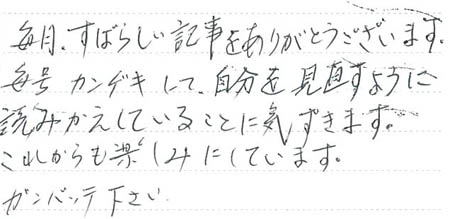 毎月、すばらしい記事をありがとうございます。
毎号 カンゲキして、自分を見直すように
読みかえしていることに気ずきます。
これからも楽しみにしています。
ガンバッテ下さい